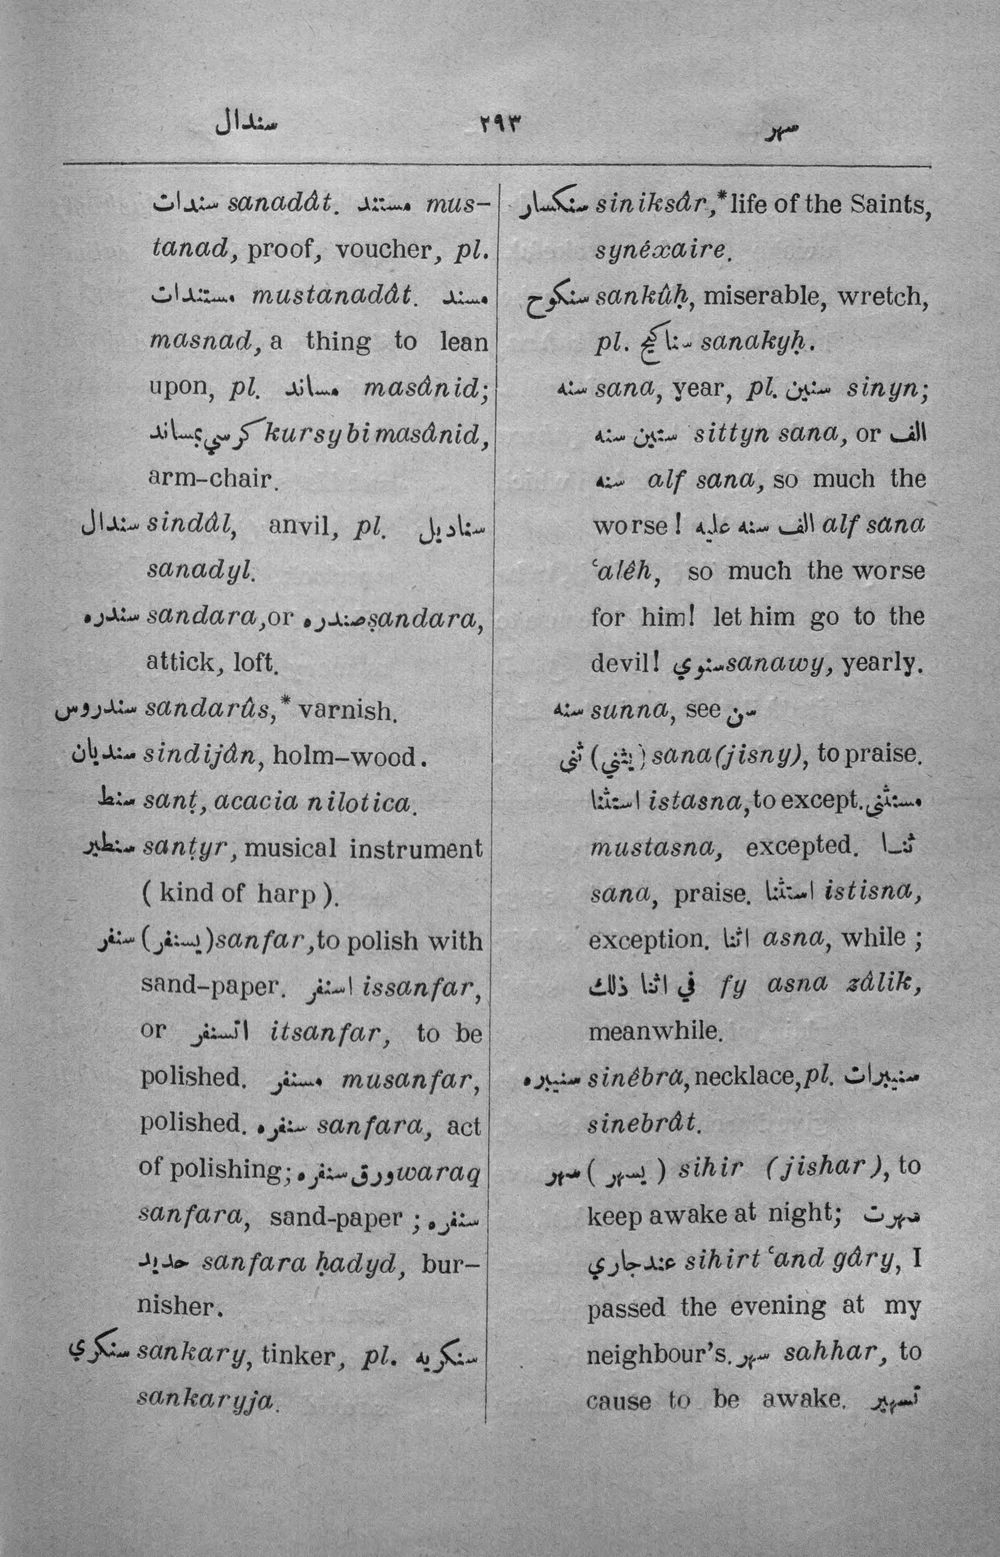 سندال ٢٩٣ سهر
سندات sanadât. مستند mus-
tanad, proof, voucher, pl.
مستندات mustanadât. مسند
masnad, a thing to lean
upon, pl. مساند masânid;
كرسي بمساند kursy bi masânid,
arm-chair.
سندال sindâl, anvil, pl. سناديل
sanadyl.
سندره sandara, or صندره ṣandara,
attick, loft.
سندروس sandarûs,* varnish.
سنديان sindijân, holm-wood.
سنط sanṭ, acacia nilotica.
سنطير sanṭyr, musical instrument
( kind of harp ).
سنفر (يسنفر) sanfar, to polish with
sand-paper. اسنفر issanfar,
or اتسنفر itsanfar, to be
polished. مسنفر musanfar,
polished. سنفره sanfara, act
of polishing; ورق سنفره waraq
sanfara, sand-paper ; سنفره
حديد sanfara ḥadyd, bur-
nisher.
سنكري sankary, tinker, pl. سنكريه
sankaryja.
سنكسار siniksâr,* life of the Saints,
synéxaire.
سنكوح sankûḥ, miserable, wretch,
pl. سناكيح sanakyḥ.
سنه sana, year, pl. سنين sinyn;
ستين سنه sittyn sana, or الف
سنه alf sana, so much the
worse! الف سنه عليه alf sana
ʿalêh, so much the worse
for him! let him go to the
devil! سنوي sanawy, yearly.
سنه sunna, see سن
ثنى (يثني) sana (jisny), to praise.
استثنا istasna, to except. مستثنى
mustasna, excepted. ثنا
sana, praise. استثنا istisna,
exception. اثنا asna, while ;
في اثنا ذلك fy asna zâlik,
meanwhile.
سنيبره sinêbra, necklace, pl. سنيبرات
sinebrât.
سهر ( يسهر ) sihir (jishar), to
keep awake at night; سهرت
عند جاري sihirt ʿand gâry, I
passed the evening at my
neighbour's. سهر sahhar, to
cause to be awake. تسهير